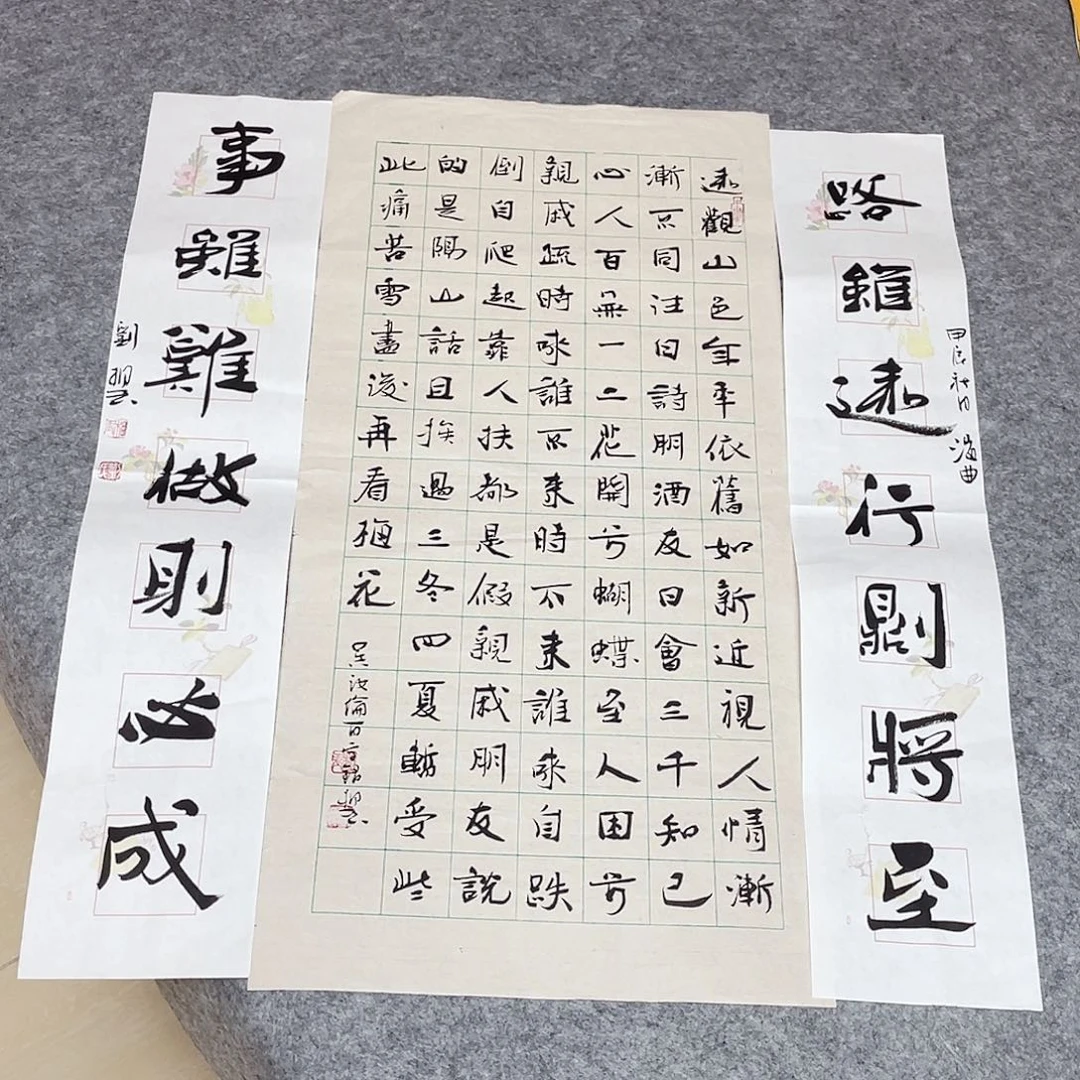 甲辰秋月 海曲
路雖遠行則將至
遠觀山色年年依舊如新近視人情漸
漸不同往日詩朋酒友日會三千知己
心人百無一二花開兮蝴蝶至人困兮
親戚疏時來誰不來時不來誰來自跌
倒自爬起靠人扶都是假親戚朋友說
的是隔山話且挨過三冬四夏暫受些
此痛苦雪盡後再看梅花
吳汝倫百字銘
事雖難做則必成
劉